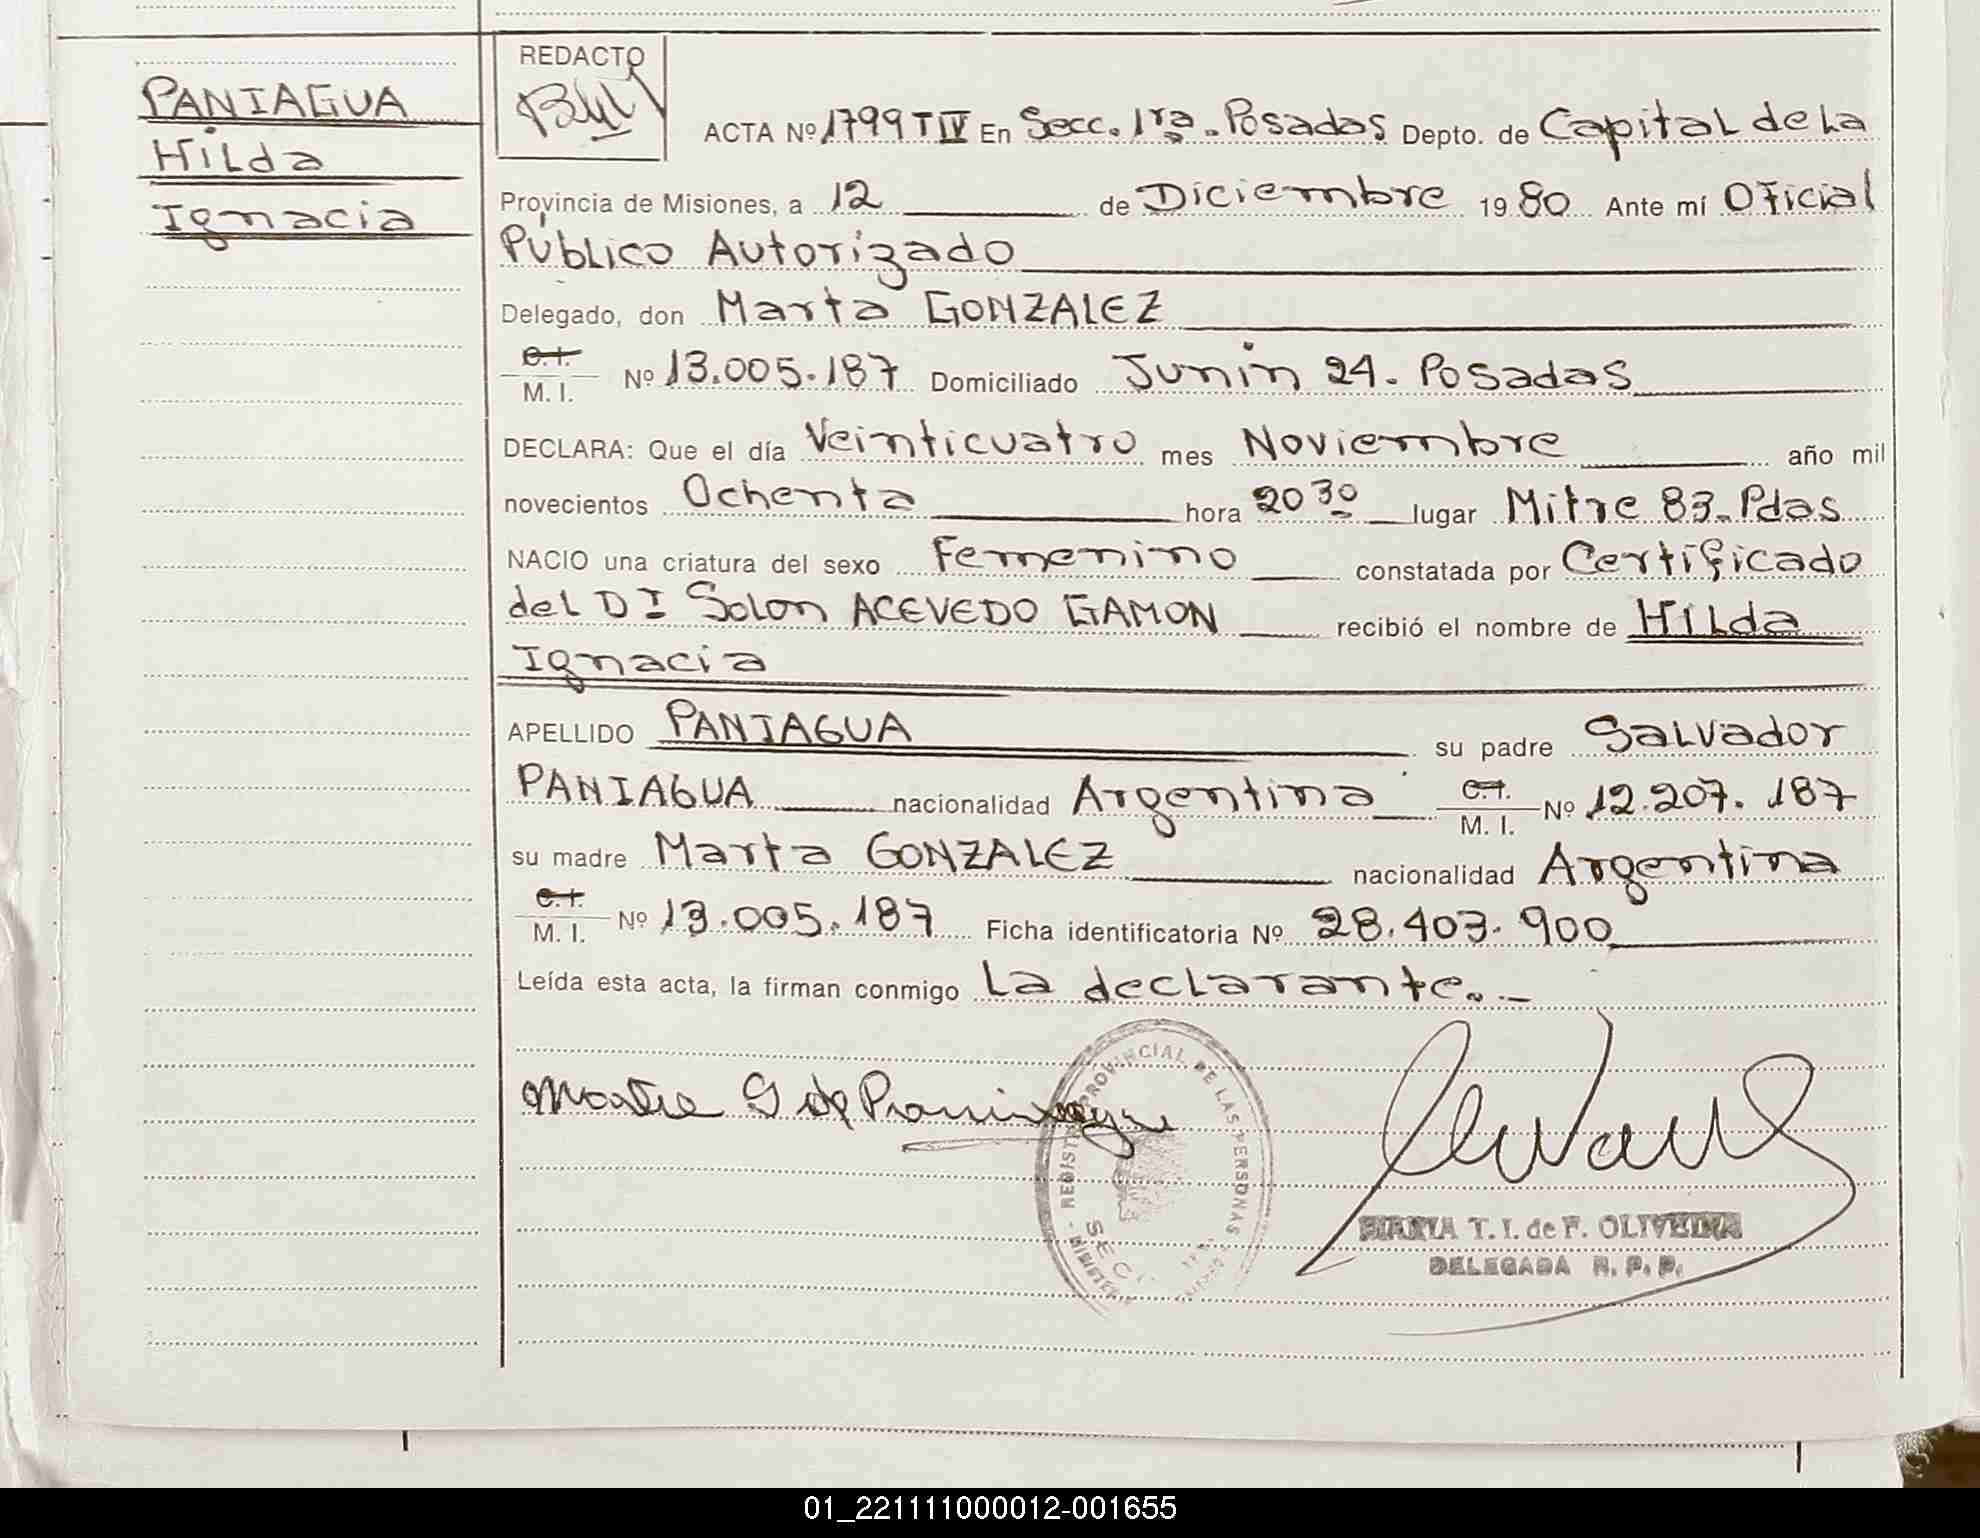 PANIAGUA
Hilda
Ignacia
REDACTO
ACTA Nº 1799 T IV En Secc. 1ra. Posadas Depto. de Capital de La
Provincia de Misiones, a 12 de Diciembre 1980 Ante mí Oficial
Público Autorizado
Delegado, don Marta GONZALEZ
C.I. M. I. Nº 13.005.187 Domiciliado Junín 24. Posadas
DECLARA: Que el día Veinticuatro mes Noviembre año mil
novecientos Ochenta hora 20 30 lugar Mitre 83. Pdas
NACIO una criatura del sexo Femenino constatada por Certificado
del DI Solon ACEVEDO GAMON recibió el nombre de Hilda
Ignacia
APELLIDO PANIAGUA su padre Salvador
PANIAGUA nacionalidad Argentina C.I. M. I. Nº 12.207.187
su madre Marta GONZALEZ nacionalidad Argentina
C.I. M. I. Nº 13.005.187 Ficha identificatoria Nº 28.403.900
Leída esta acta, la firman conmigo La declarante.-
REGISTRO PROVINCIAL DE LAS PERSONAS
T. I. de F. OLIVEIRA
DELEGADA R. P. P.
01_221111000012-001655